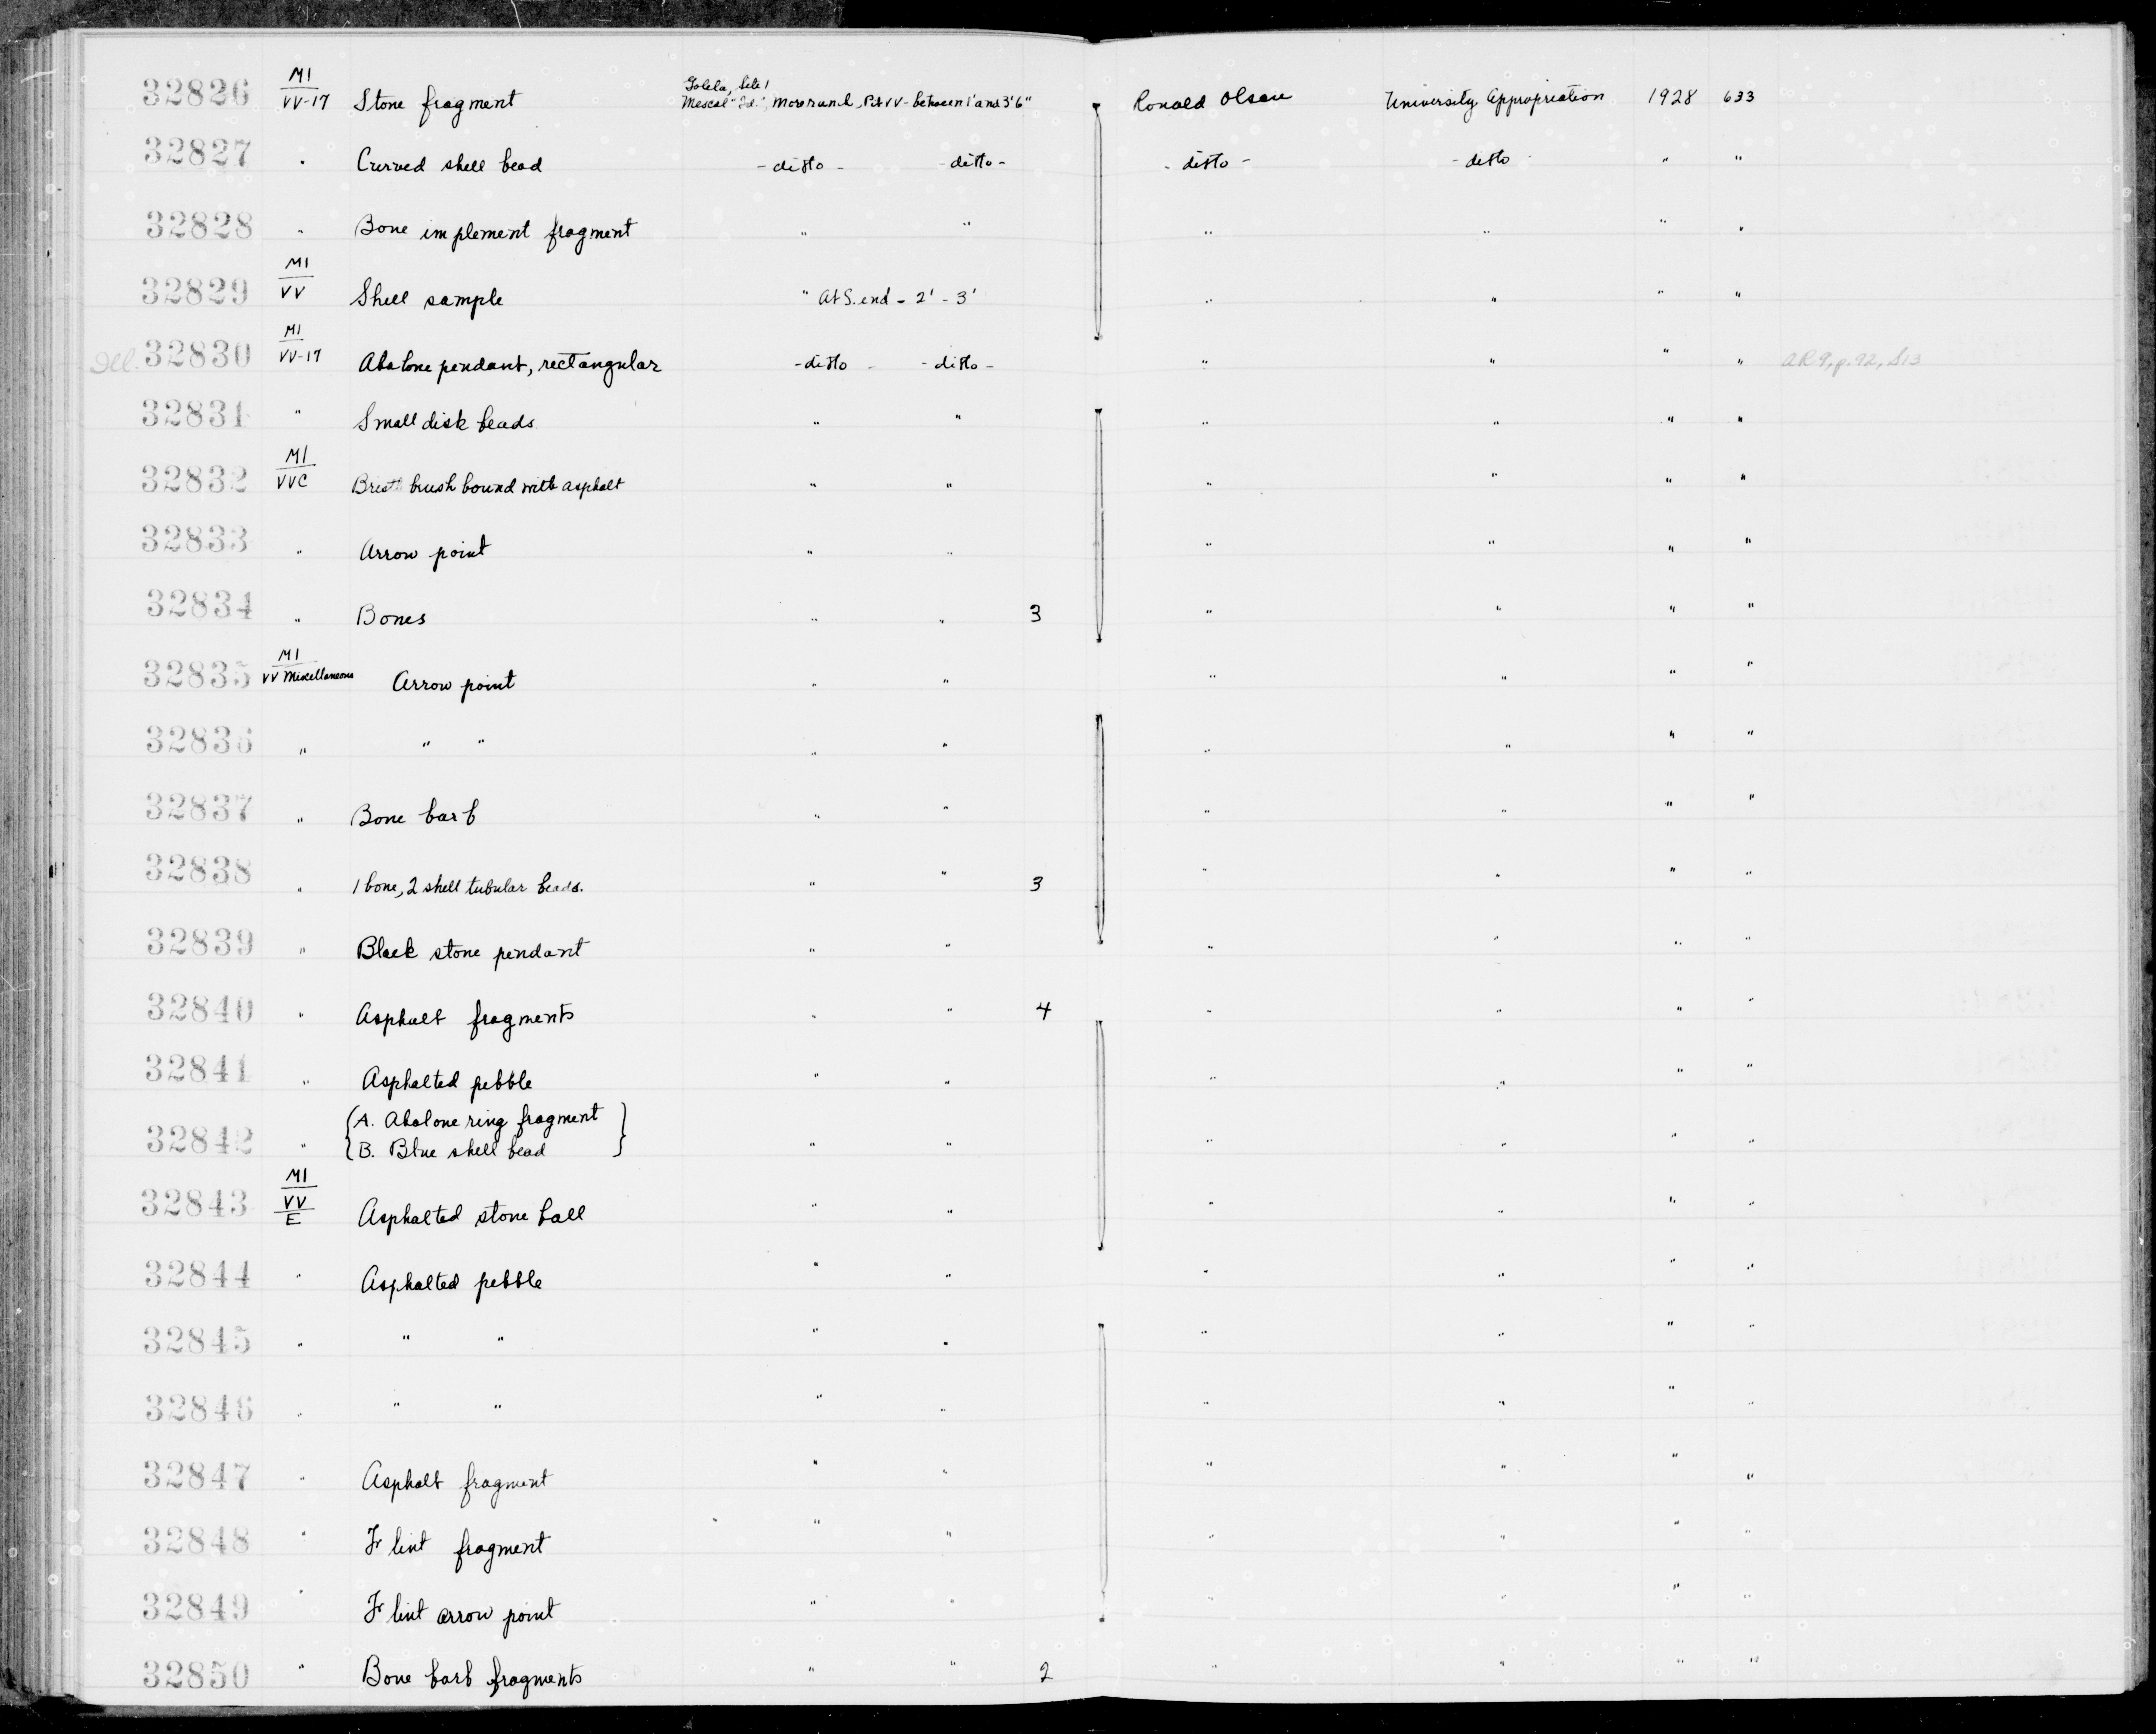 32826 M1 VV-17 Stone fragment Goleta, Site 1 Mescal "Id.", Moore and, Pit VV - between 1' and 3'6" Ronald Olson University Appropriation 1928 633
32827 " Curved shell bead - ditto - - ditto - - ditto - - ditto " "
32828 " Bone implement fragment " " " " " "
32829 M1 VV Shell sample " At S. end - 2' - 3' " " " "
Ill. 32830 M1 VV-17 Abalone pendant, rectangular - ditto - - ditto - " " " " AR9, p. 92, S13
32831 " Small disk beads " " " " " "
32832 M1 VVC brush bound with asphalt " " " " " "
32833 " Arrow point " " " " " "
32834 " Bones " " 3 " " " "
32835 M1 VV Miscellaneous Arrow point " " " " " "
32836 " " " " " " " " "
32837 " Bone barb " " " " " "
32838 " 1 bone, 2 shell tubular beads. " " 3 " " " "
32839 " Black stone pendant " " " " " "
32840 " Asphalt fragments " " 4 " " " "
32841 " Asphalted pebble " " " " " "
32842 " {A. Abalone ring fragment
{B. Blue shell bead } " " " " " "
32843 M1 VV E Asphalted stone ball " " " " " "
32844 " Asphalted pebble " " " " " "
32845 " " " " " " " " "
32846 " " " " " " " " "
32847 " Asphalt fragment " " " " " "
32848 " Flint fragment " " " " " "
32849 " Flint arrow point " " " " " "
32850 " Bone barb fragments " " 2 " " " "